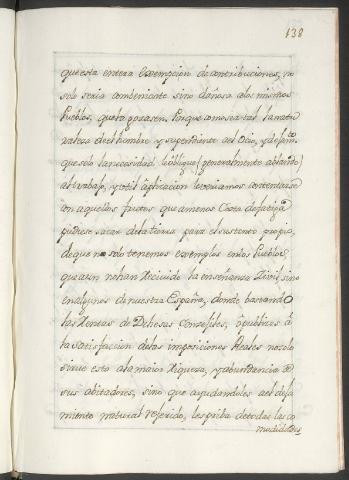 138
que esta entera exempcion de contribuciones, no
solo seria combeniente sino dañosa a los mismos
Pueblos, que la gozasen. Porque como sea tal la natu
raleza del hombre y su pendiente al Ocio, y
que solo la necesidad le obligue (generalmente ablando)
al trabajo, y util aplicacion le veriamos contentarse
con aquellos frutos que a menos Costa de fatiga
pudiese sacar de la tierra para el sustento propio,
de que no solo tenemos exemplos en los Pueblos
que aun no han Recivido la enseñanza Zivil, sino
en algunos de nuestra España, donde bastando
las Rentas de Dehesas Consejiles, o publicas â
la satisfaccion de las imposiciones Reales no solo
sirue esto a la maior Riqueza, y abundancia de
sus abitadores, sino que ayudandoles al desa
miento natural referido, les priba de todas las co
modidades